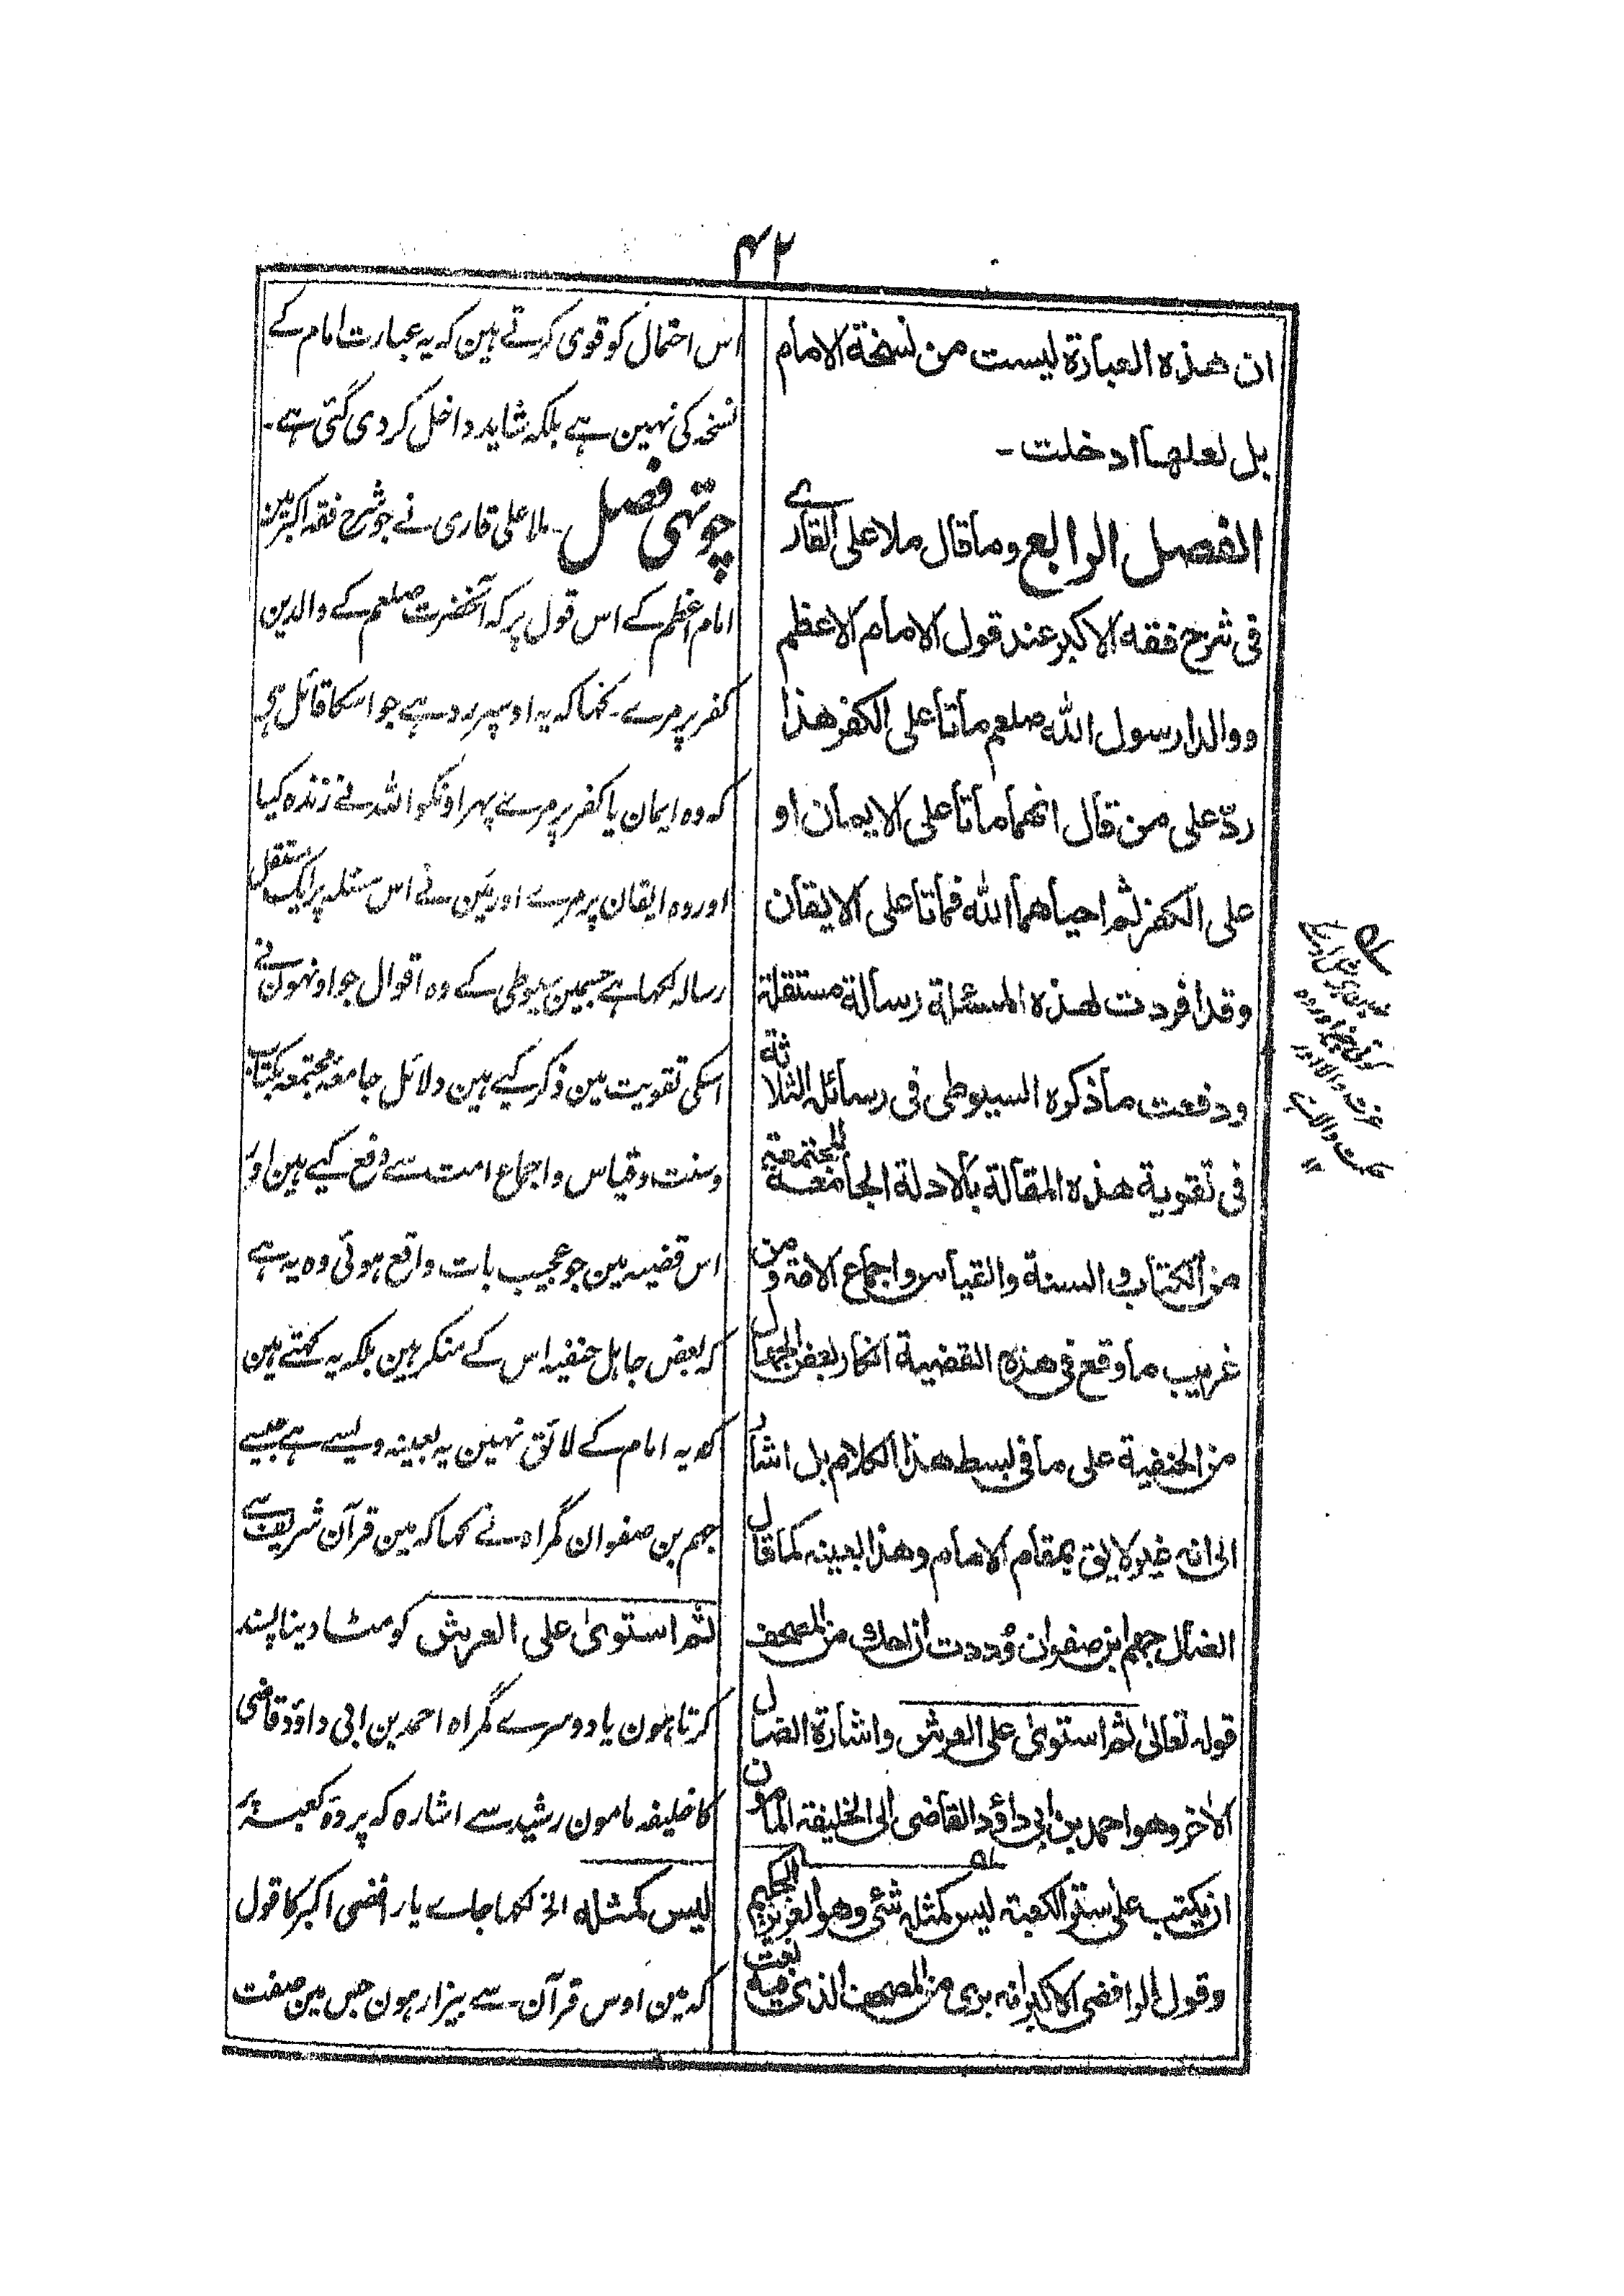 ۴۲
ان هذه العبارة ليست من نسخة الامام
بل لعلها ادخلت -
الفصل الرابع وما قال ملا على القارے
فى شرح فقه الاكبر عند قول الامام الاعظم
ووالدا رسول الله صلعم ماتا على الكفر هذا
ردّ على من قال انهما ماتا على الايمان او
على الكفر ثم احياهما الله فماتا على الايقان
وقد افردت لهذه المسئلة رسالة مستقلة
ودفعت ما ذكره السيوطى فى رسائله الثلاثة
فى تقوية هذه المقالة بالادلة الجامعة المجتمعة
من الكتاب و السنة والقياس و اجماع الامة و من
غريب ما وقع فى هذه القضية انكار بعض الجهال
من الحنفية على ما فى بسط هذا الكلام بل اشار
الى انه غير لايق بمقام الامام وهذا بعينه كما قال
الضال جهم ابن صفوان وُددت ان احك من المصحف
قوله تعالىٰ ثم استوىٰ على العرش واشارة الضال
الاٰخر وهو احمد بن ابى داؤد القاضى الى الخليفة المامون
ان يكتب على ستر الكعبة ليس كمثله شئ وهو العزيز الحكيم
وقول الرافضى الاكبر انه برى من المصحف الذى فيه نعت
اس احتمال کو قوی کرتے ہین کہ یہ عبارت امام کے
نسخہ کی نہین ہے بلکہ شاید داخل کر دی گئی ہے۔
چوتہی فصل۔ ملا علی قاری نے جو شرح فقہ اکبر مین
امام اعظم کے اس قول پر کہ آنحضرت صلعم کے والدین
کفر پر مرے۔ کہا کہ یہ اوسپر رد ہے جو اسکا قائل ہی
کہ وہ ایمان یا کفر پر مرے پہر اونکو اللہ نے زندہ کیا
اور وہ ایقان پر مرے اور مین نے اس مسئلہ پر ایک مستقل
رسالہ لکہا ہے جسمین سیوطی کے وہ اقوال جو اونہون نے
اسکی تقویت مین ذکر کیے ہین دلائل جامعہ مجتمعہ کتاب
وسنت و قیاس و اجماع امت سے دفع کیے ہین اور
اس قضیہ مین جو عجیب بات واقع ہوئی وہ یہ ہے
کہ بعض جاہل حنفیہ اس کے منکر ہین بلکہ یہ کہتے ہین
کہ یہ امام کے لائق نہین یہ بعینہ ویسے ہے جیسے
جہم بن صفوان گمراہ نے کہا کہ مین قرآن شریف سے
ثم استویٰ علی العرش کو مٹا دینا پسند
کرتا ہون یا دوسرے گمراہ احمد بن ابی داؤد قاضی
کا خلیفہ مامون رشید سے اشارہ کہ پردہ کعبہ پر
لیس کمثلہ الخ لکہا جاے یا رافضی اکبر کا قول
کہ مین اوس قرآن سے بیزار ہون جس مین صفت